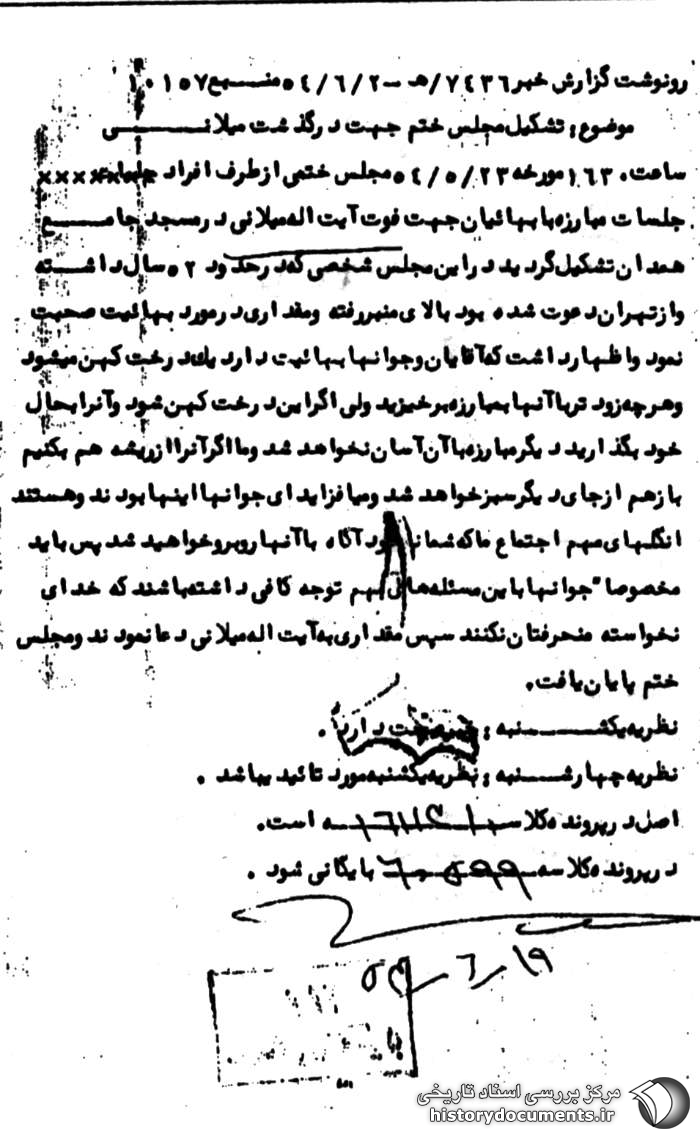 رونوشت گزارش خبر ۷۴۳۶/هـ -۵۴/۶/۲ منبع ۱۰۱۵۷
موضوع: تشکیل مجلس ختم جهت درگذشت میلانی
ساعت ۱۶۳۰ مورخه ۵۴/۵/۲۳ مجلس ختمی از طرف افراد xxxx
جلسات مبارزه با بهائیان جهت فوت آیت اله میلانی در مسجد جامع
همدان تشکیل گردید در این مجلس شخصی که در حدود ۵۲ سال داشته
و از تهران دعوت شده بود بالای منبر رفته و مقداری در مورد بهائیت صحبت
نمود و اظهار داشت که آقایان و جوانها بهائیت دارد یک درخت کهن میشود
و هر چه زودتر با آنها بمبارزه برخیزید ولی اگر این درخت کهن شود و آنرا بحال
خود بگذارید دیگر مبارزه با آن آسان نخواهد شد و ما اگر آنرا از ریشه هم بکنیم
باز هم از جای دیگر سبز خواهد شد و میافزاید ای جوانها اینها بودند و هستند
انگلهای مهم اجتماع ما که شما ناخودآگاه با آنها روبرو خواهید شد پس باید
مخصوصا" جوانها باین مسئله‌های مهم توجه کافی داشته باشند که خدای
نخواسته منحرفتان نکنند سپس مقداری به آیت اله میلانی دعا نمودند و مجلس
ختم پایان یافت.
نظریه یکشنبه : خبر صحت دارد .
نظریه چهارشنبه : نظریه یکشنبه مورد تائید میباشد .
اصل در پرونده کلاسه است.
در پرونده کلاسه بایگانی شود .
۱۹-۶-۵۴
مرکز بررسی اسناد تاریخی
historydocuments.ir